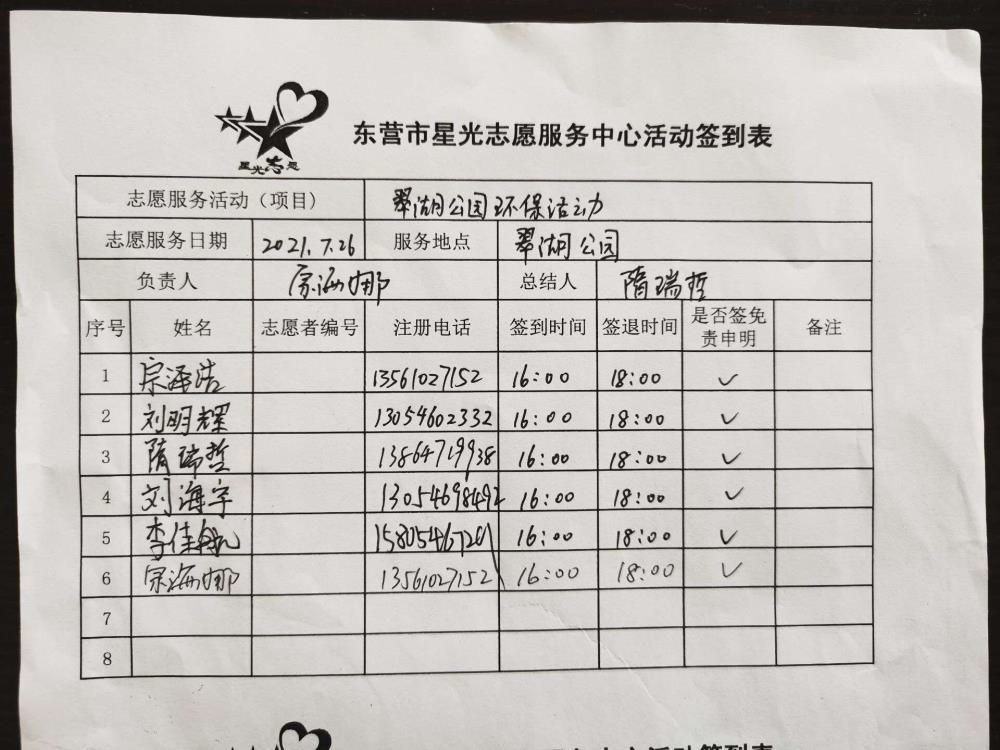 星光志愿
东营市星光志愿服务中心活动签到表
志愿服务活动（项目） 翠湖公园环保活动
志愿服务日期 2021.7.26 服务地点 翠湖公园
负责人 宗海娜 总结人 隋瑞哲
序号 姓名 志愿者编号 注册电话 签到时间 签退时间 是否签免责申明 备注
1 宗泽浩 13561027152 16:00 18:00 ✓
2 刘明辉 13054602332 16:00 18:00 ✓
3 隋瑞哲 13864719938 16:00 18:00 ✓
4 刘海宇 13054698492 16:00 18:00 ✓
5 李佳航 15805467201 16:00 18:00 ✓
6 宗海娜 13561027152 16:00 18:00 ✓
7
8